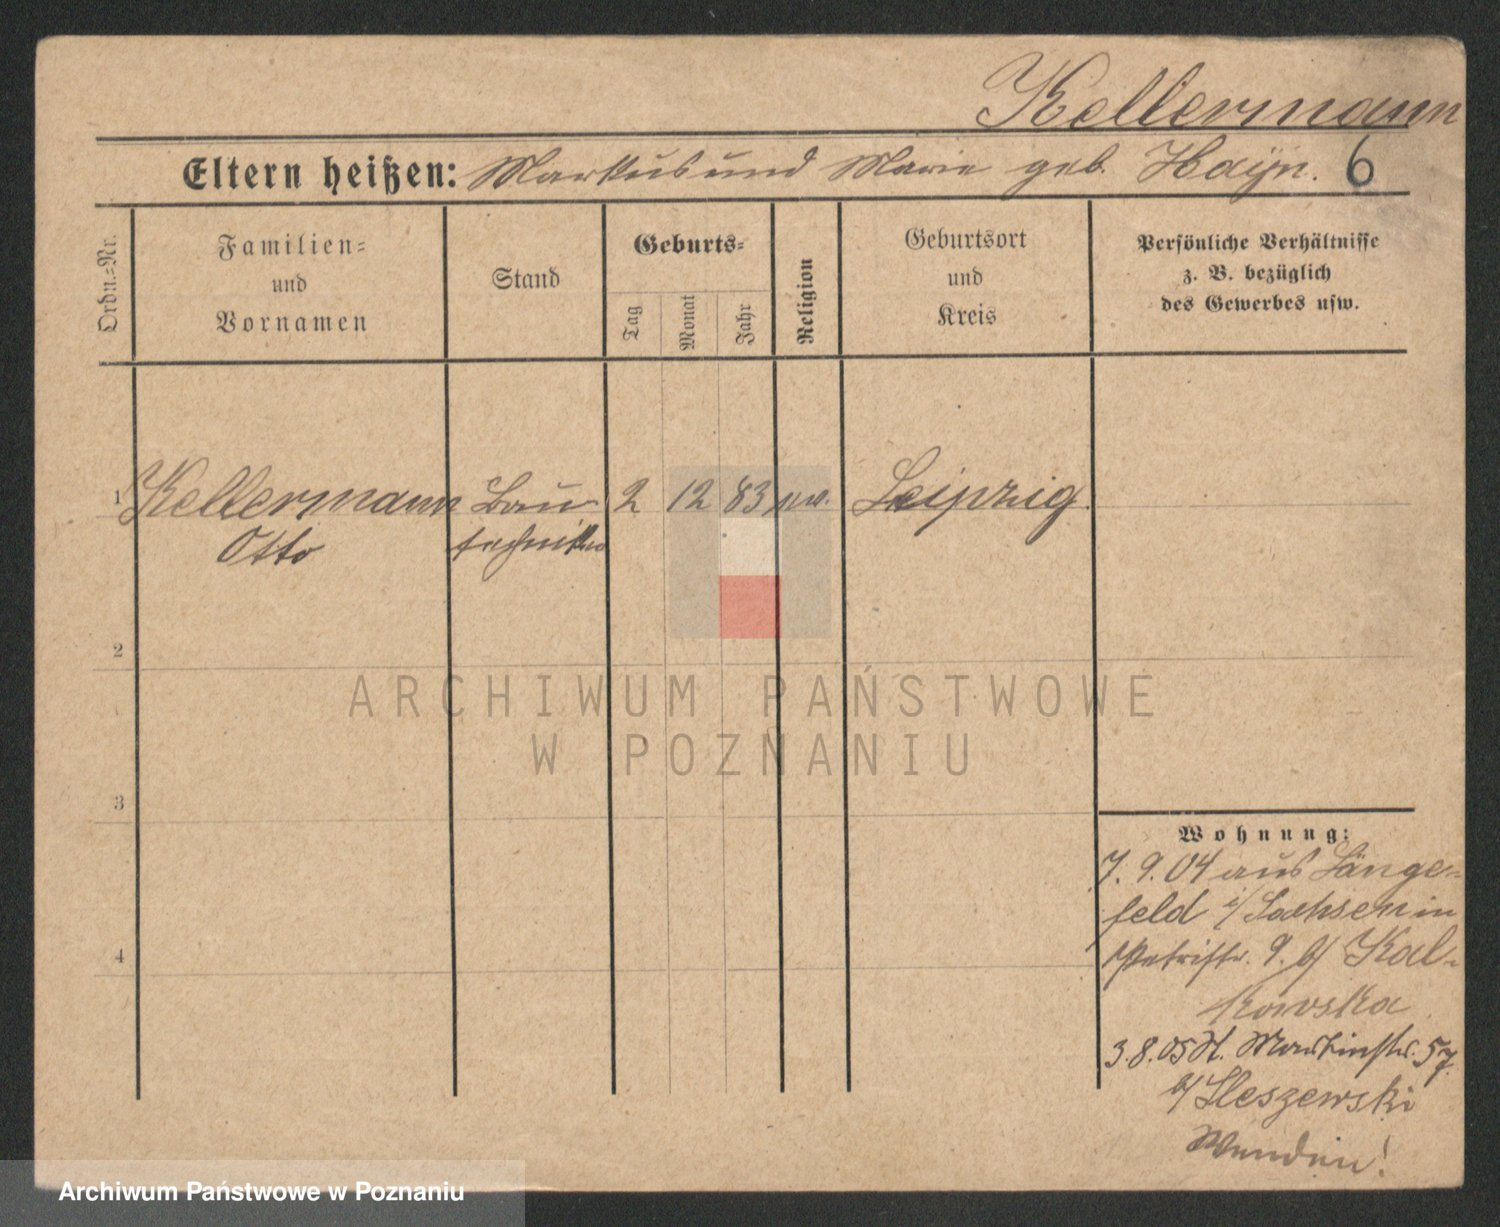 Kellermann
Eltern heißen: Markus und Marie geb. Hayn. 6
Ordn.-Nr.
Familien-
und
Vornamen
Stand
Geburts-
Tag
Monat
Jahr
Religion
Geburtsort
und
Kreis
Persönliche Verhältnisse
z. B. bezüglich
des Gewerbes usw.
1 Kellermann Bau- 2 12 83 Leipzig.
Otto techniker
2
3
4
Wohnung:
7. 9. 04 aus Länge-
feld i/ Sachsen in
Petristr. 9. b/ Kal-
kowska
3. 8. 05 St. Martinstr. 57
b/ Sleszewski
Wenden!
ARCHIWUM PAŃSTWOWE
W POZNANIU
Archiwum Państwowe w Poznaniu